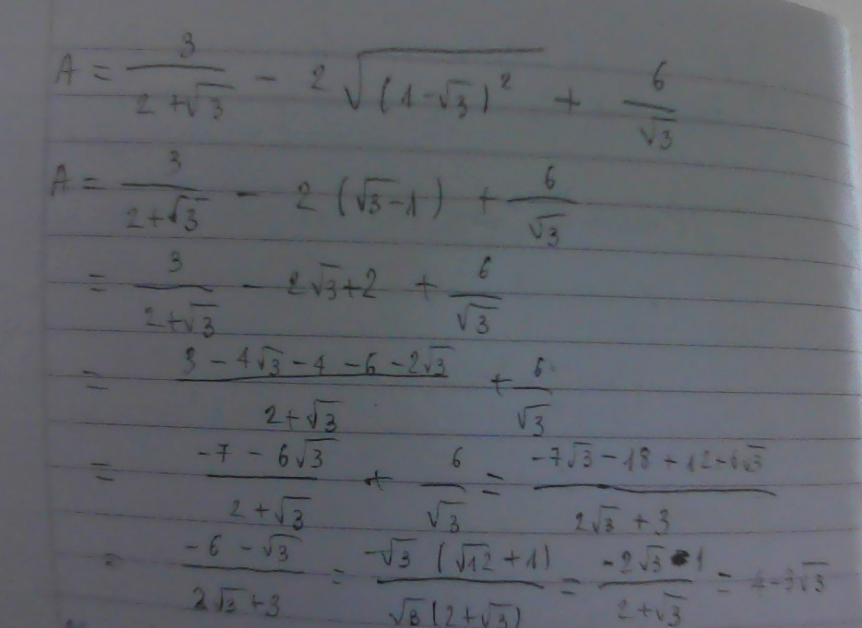 A = 3/(2+√3) - 2√((1-√3)²) + 6/√3
A = 3/(2+√3) - 2(√3-1) + 6/√3
= 3/(2+√3) - 2√3+2 + 6/√3
= (3 - 4√3 - 4 - 6 - 2√3)/(2+√3) + 6/√3
= (-7 - 6√3)/(2+√3) + 6/√3 = (-7√3 - 18 + 12 + 6√3)/(2√3 + 3)
= (-6 - √3)/(2√3+3) = -√3(√12+1)/(√3(2+√3)) = (-2√3 - 1)/(2+√3) = 4-3√3